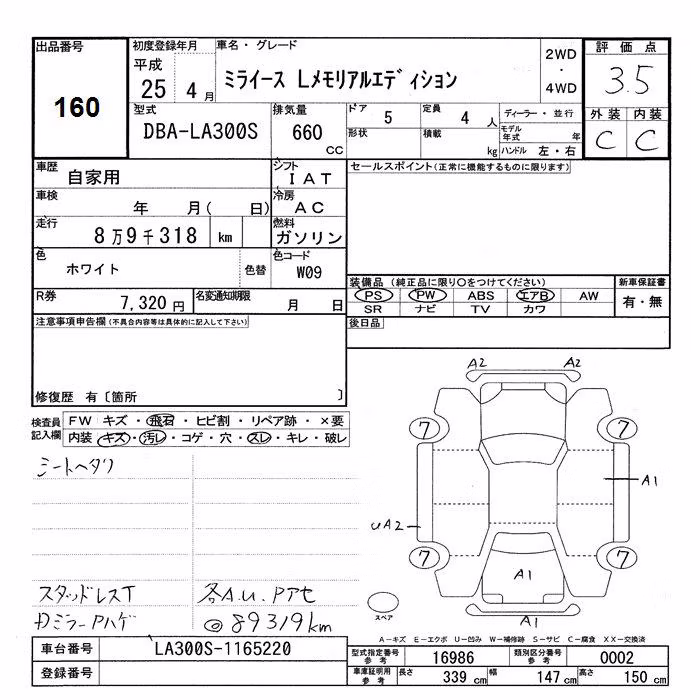 出品番号 初度登録年月 車名・グレード 2WD 評価点
160 平成 25 4月 ミライース Lメモリアルエディション ・ 4WD 3.5
型式 排気量 ドア 5 定員 4人 ディーラー・並行 外装 内装
DBA-LA300S 660 CC 形状 積載 kg モデル年式 年 C C
ハンドル 左・右
車歴 自家用 シフト IAT セールスポイント(正常に機能するものに限ります)
車検 年 月( 日) 冷房 AC
走行 8万9千318 km 燃料 ガソリン
色 ホワイト 色替 色コード W09
装備品(純正品に限り○をつけてください) 新車保証書
R券 7,320円 名変通知期限 月 日 PS PW ABS エアB AW 有・無
SR ナビ TV カワ
注意事項申告欄(不具合内容等は具体的に記入して下さい) 後日品
修復歴 有〔箇所 〕
検査員記入欄 FW キズ・飛石・ヒビ割・リペア跡・×要
内装 キズ・汚レ・コゲ・穴・スレ・キレ・破レ
シートヘタリ
スタッドレスT 各A.U.Pアセ
Dミラーpハゲ ◎89319km
A2 A2
7 7
A1
UA2
7 7
A1
A1
スペア
A-キズ E-エクボ U-凹み W-補修跡 S-サビ C-腐食 XX-交換済
車台番号 LA300S-1165220
型式指定番号 参考 16986 類別区分番号 参考 0002
登録番号
車庫証明用 参考 長さ 339 cm 幅 147 cm 高さ 150 cm